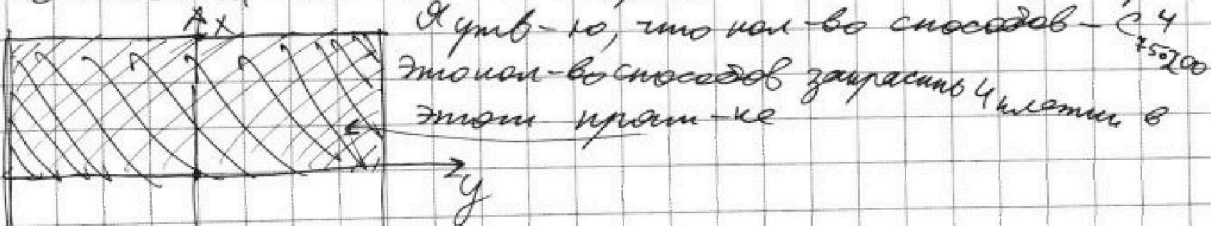 X
Я утв-ю, что кол-во способов - C⁴₇₅·₂₀₀
Это кол-во способов закрасить 4 клетки в
этом прям-ке
y